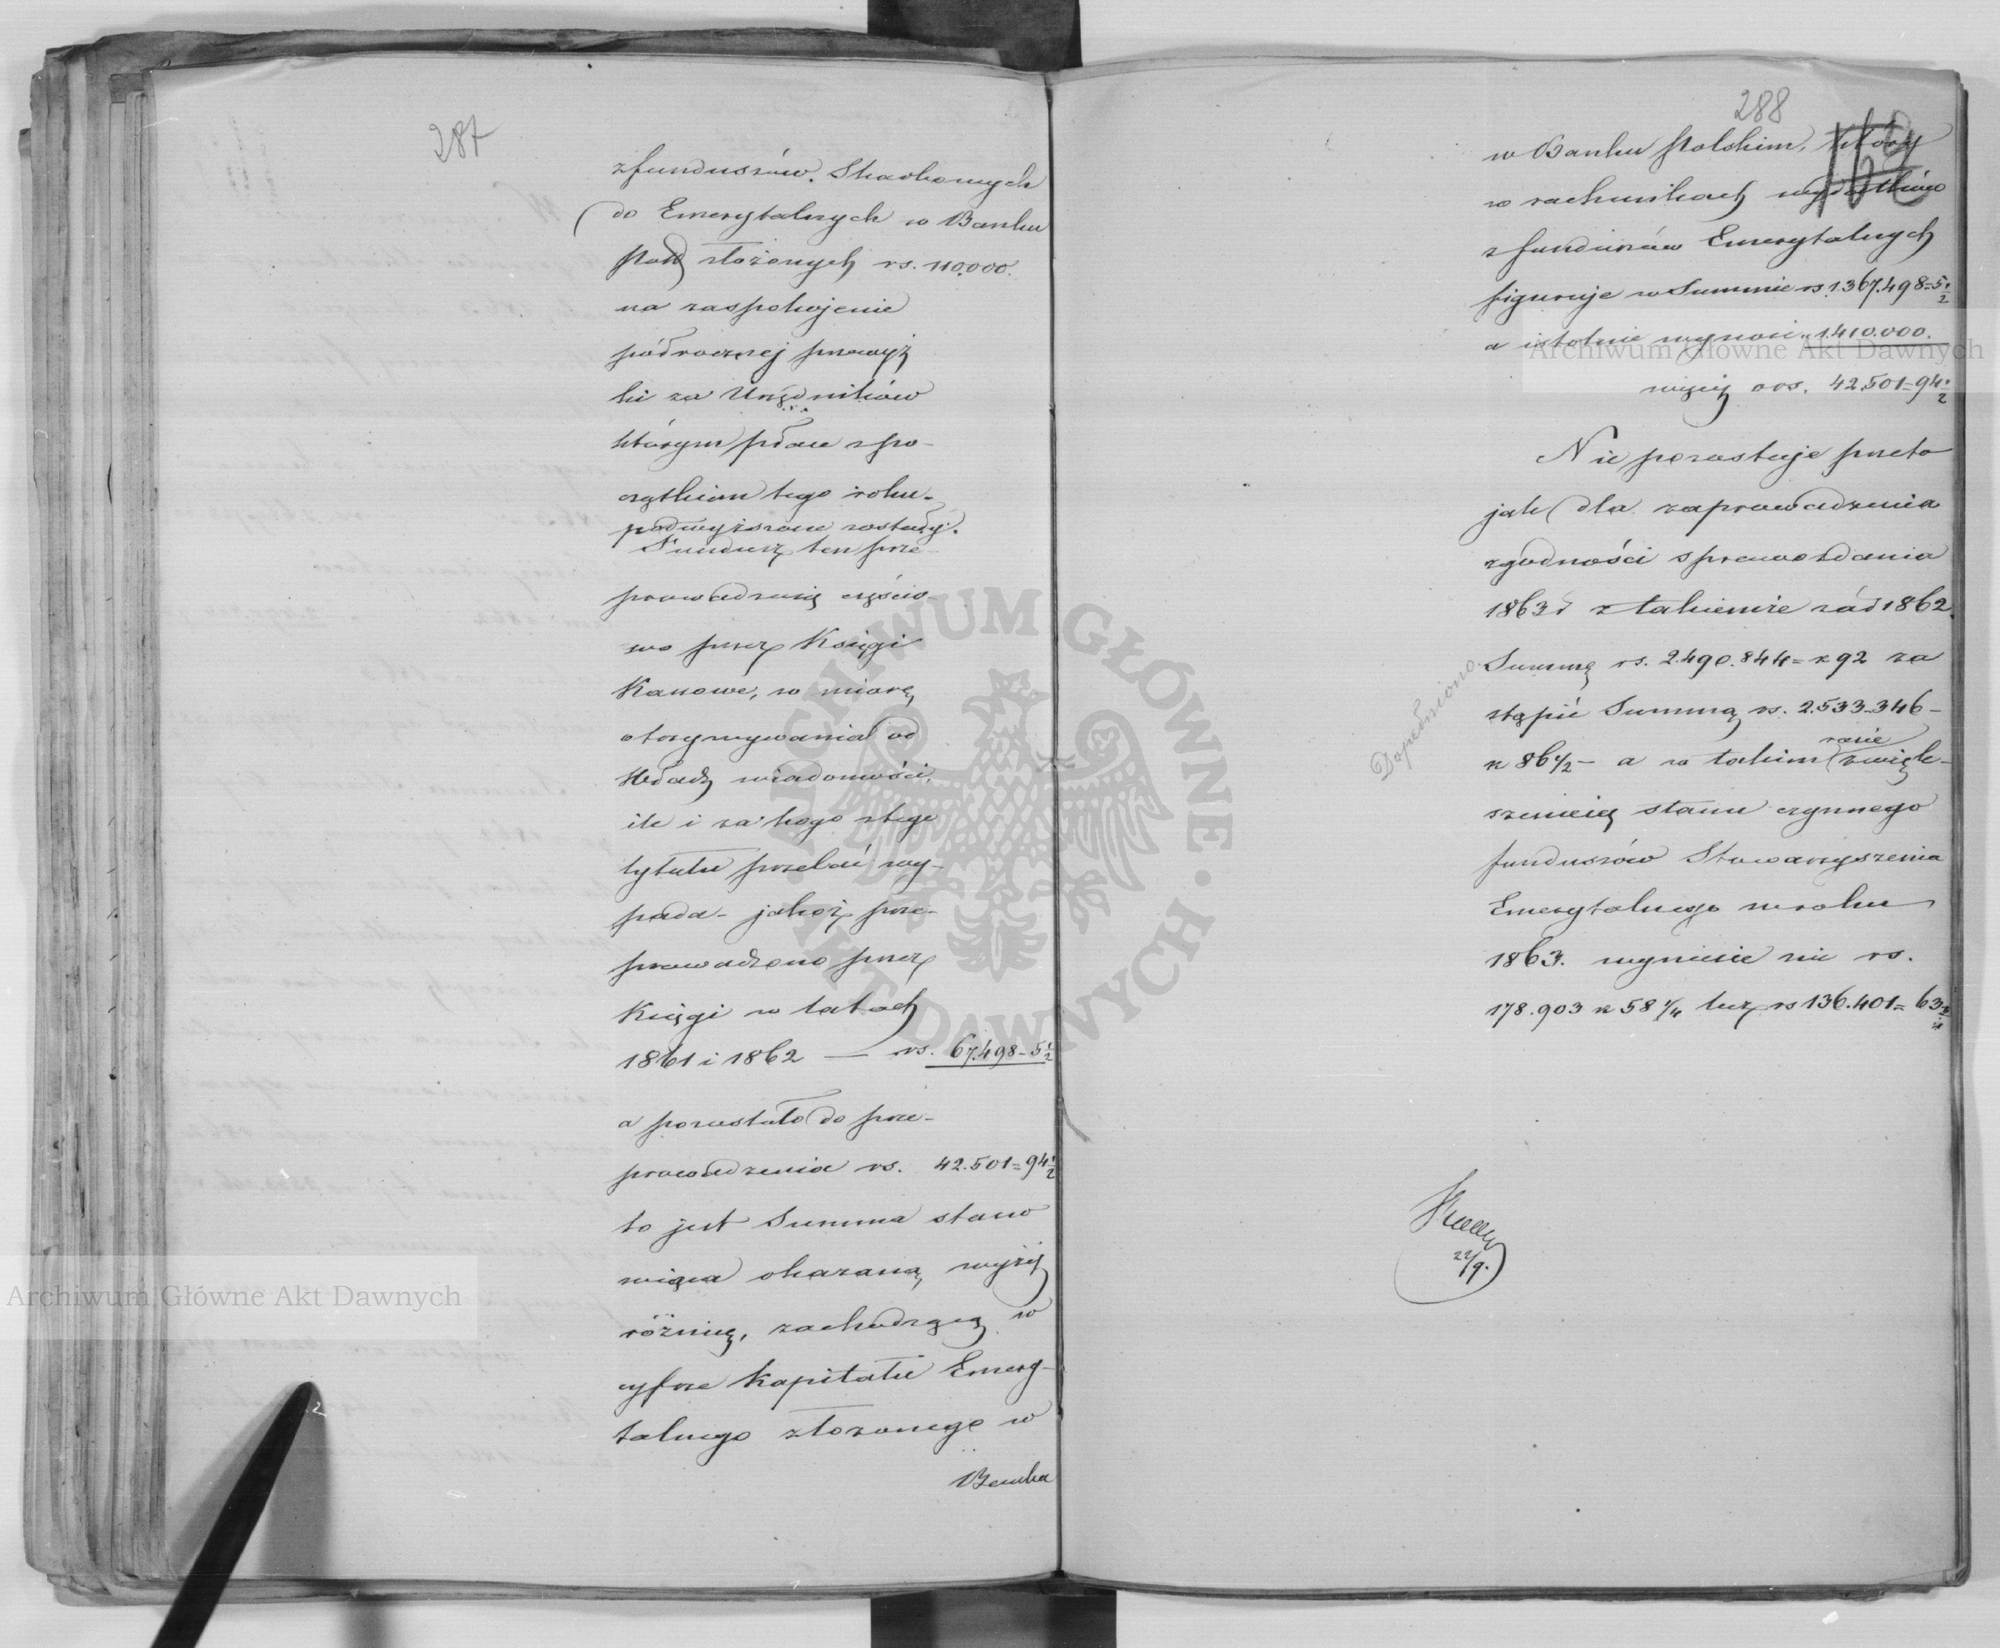 287
z funduszów Skarbowych
do Emerytalnych w Banku
Pols złożonych rs. 110.000.
na zaspokojenie
półrocznej przewyż
ki za Urzędników
którym płace z po-
czątkiem tego roku
podwyższone zostały.
Fundusz ten prze-
prowadzają częścio
wo przez Księgi
Kassowe, w miarę
otrzymywania od
Władz wiadomości,
ile i za kogo z tego
tytułu przelać wy-
pada - jakoż prze-
prowadzono przez
Księgi w latach
1861 i 1862 — rs. 67.498 - 5 1/2
a pozostało do prze-
prowadzenia rs. 42.501 = 94 1/2
to jest Summa stano
wiąca okazaną wyżej
różnicę, zachodzącą w
cyfrze Kapitału Emery-
talnego złożonego w
Banku
288
162
w Banku Polskim, który
w rachunkach wydatków
z funduszów Emerytalnych
figuruje w Summie rs. 1.367.498 = 5 1/2
a istotnie wynosi „ 1.410.000.
więcej o rs. 42.501 = 94 1/2
Nie pozostaje przeto
jak dla zaprowadzenia
zgodności sprawozdania
1863 r z takiemże za r 1862
Summę rs. 2.490.844 = k 92 za
stąpić Summą rs. 2.533.346 -
k 86 1/2 - a w takim razie zwięk-
szenie stanu czynnego
funduszów Stowarzyszenia
Emerytalnego w roku
1863. wyniesie nie rs.
178.903 k 58 1/4 lecz rs 136.401 = 63 3/4
Dopełniono.
22/9.
Archiwum Główne Akt Dawnych
Archiwum Główne Akt Dawnych
ARCHIWUM GŁÓWNE · AKT DAWNYCH ·